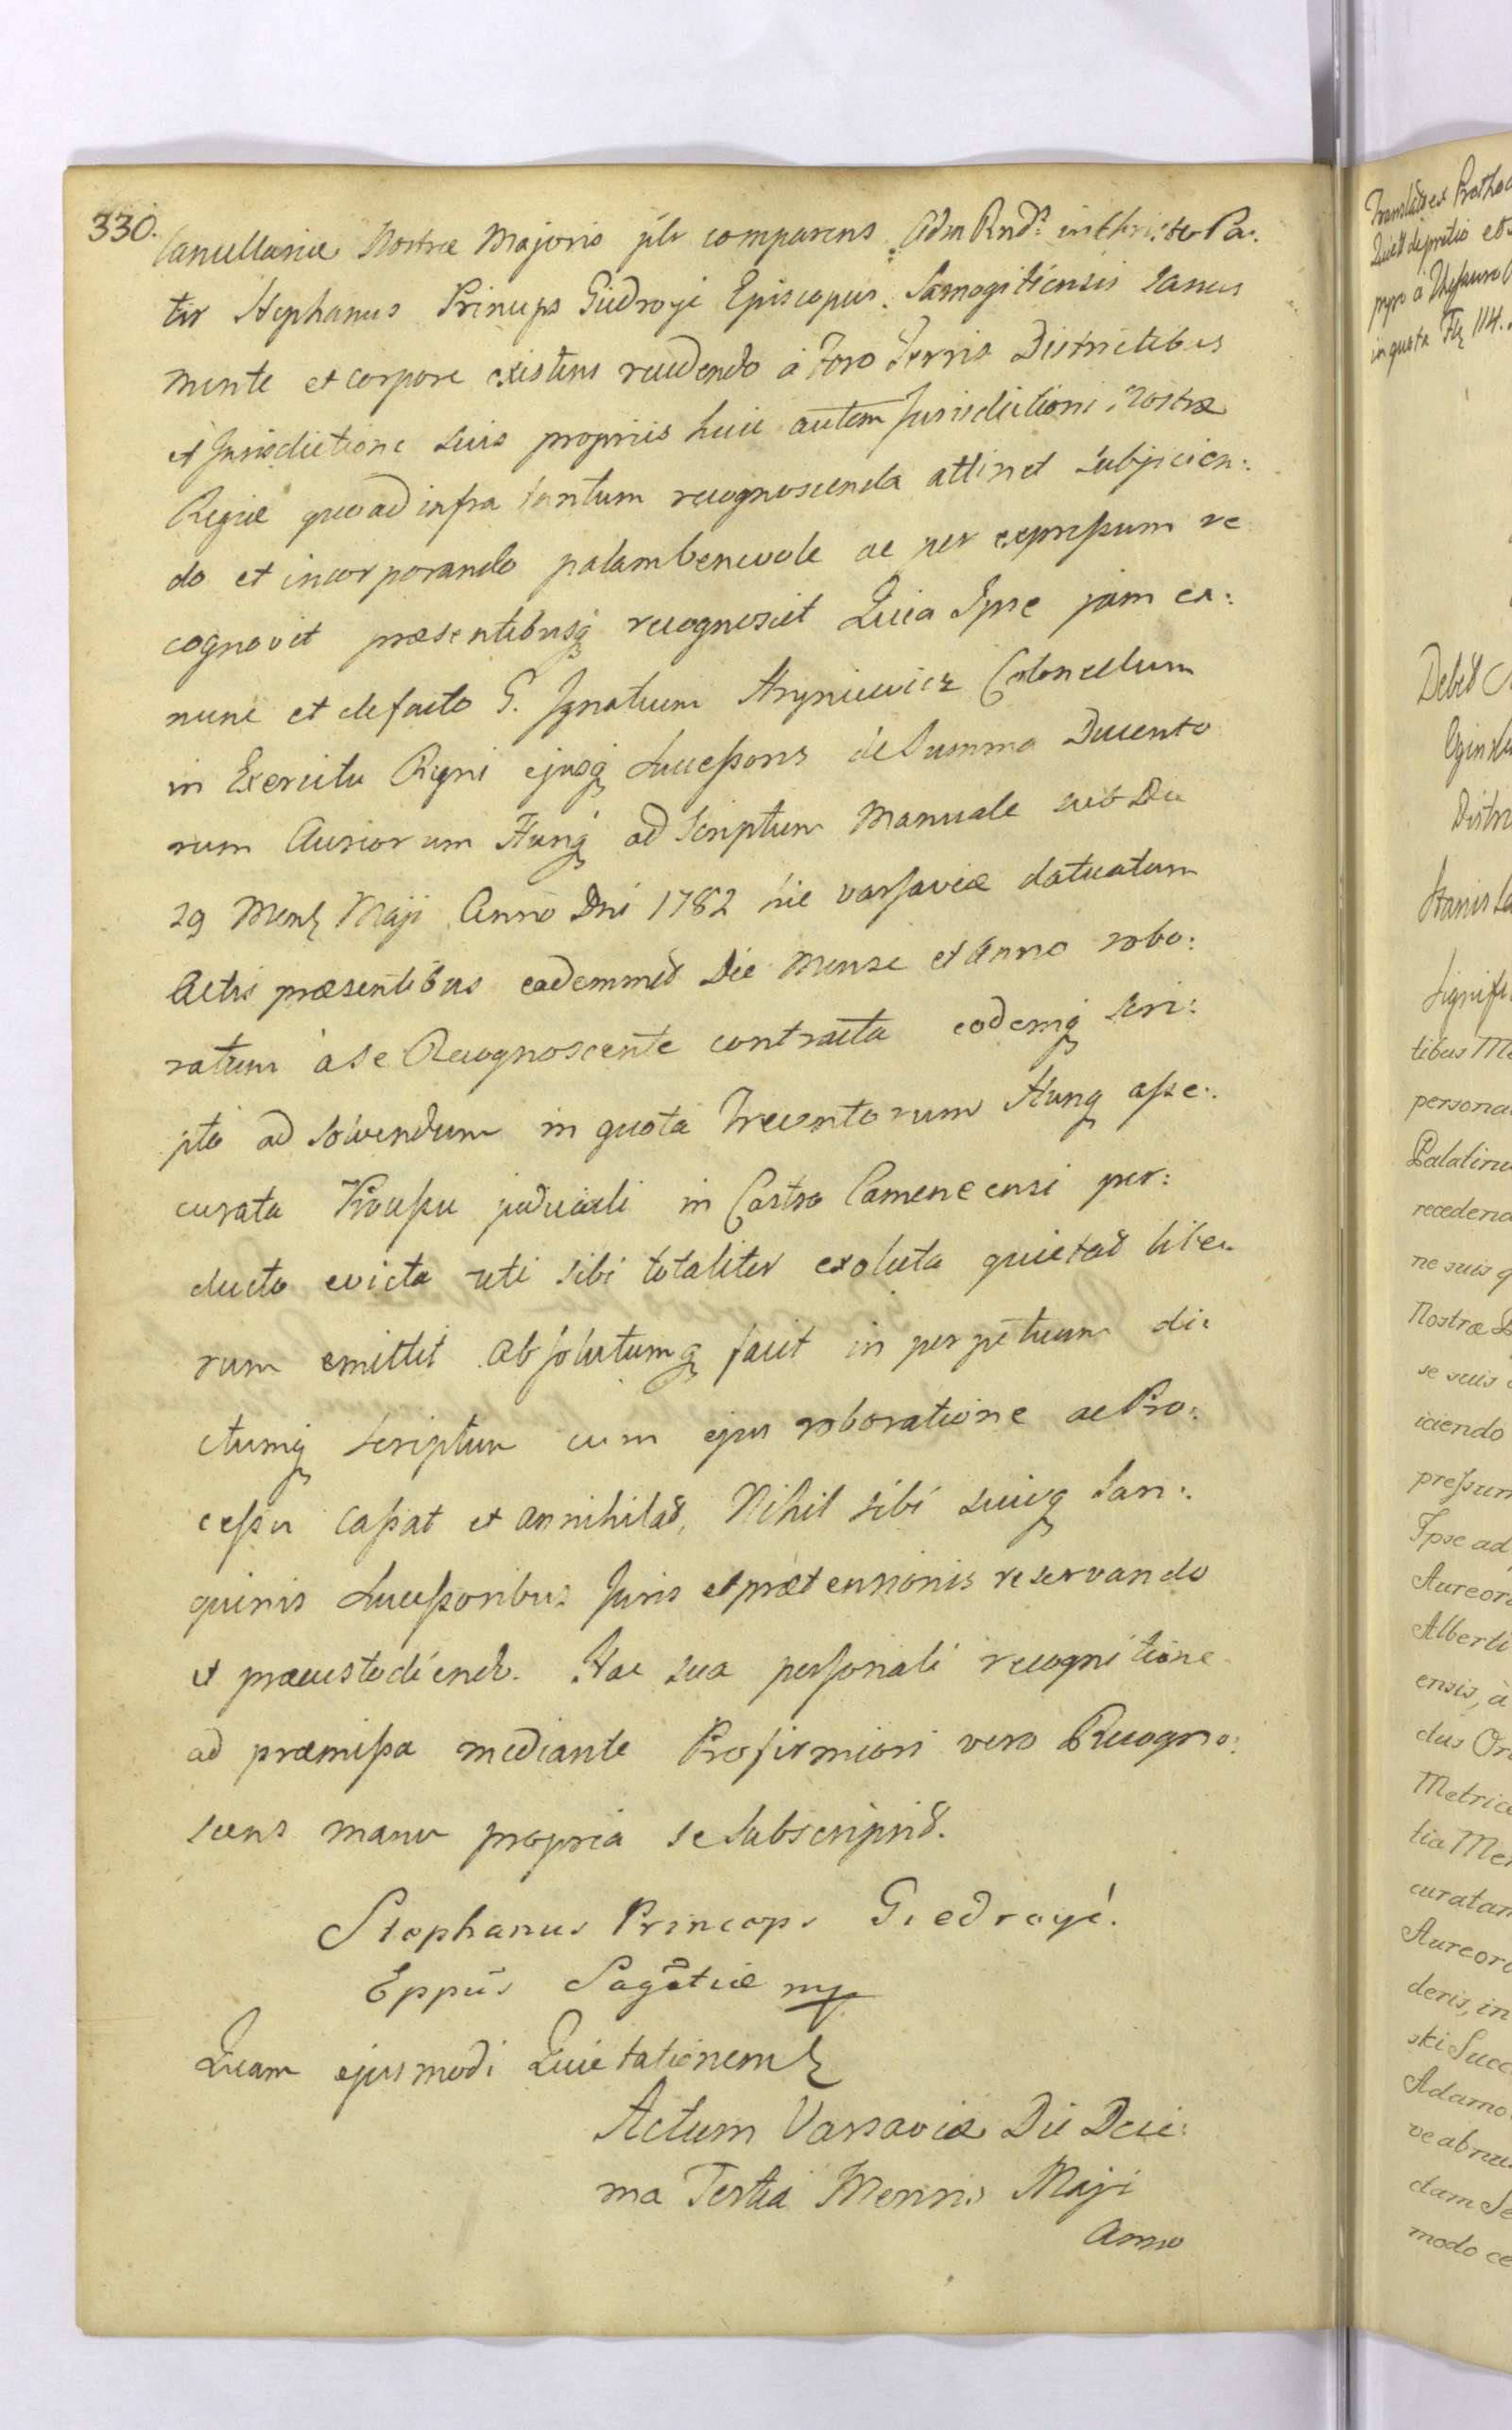 330.
Cancellariæ Nostræ Majoris plr comparens Adm Rnds in Christo Pa:
ter Stephanus Princeps Giedroyć Episcopus Samogitiensis sanus
mente et corpore existens recedendo à Foro Terris Districtibus
et Jurisdictione suis propriis huic autem Jurisdictioni Nostræ
Regiæ quoad infra tantum recognoscenda attinet subjicien:
do et incorporando palam benevole ac per expressum re
cognovit præsentibusq recognoscit Quia Ipse jam ex:
nunc et de facto G. Ignatium Hryniewicz Colonellum
in Exercitu Regni ejusq Successores de Summa Ducento
rum Aureorum Hung ad Scriptum Manuale sub Die
29 Mens Maji Anno Dni 1782 hic Varsaviæ datuatum
Actis præsentibus eademmet Die Mense et Anno robo:
ratum à se Recognoscente contracta eodemq scri:
pto ad solvendum in quota Trecentorum Hung asse:
curata Processu judiciali in Castro Camenecensi per:
ducto evicta uti sibi totaliter exoluta quietat libe:
rum emittit absolutumq facit in perpetuum di:
ctumq scriptum cum ejus roboratione ac Pro:
cessu cassat et annihilat, Nihil sibi suisq San:
guinis Successoribus Juris et prætensionis reservando
et præcustodiendo. Hac sua personali recognitione
ad præmissa mediante Pro firmiori vero Recogno:
scens manu propria se subscripsit.
Stephanus Princeps Giedroyć.
Eppus Sagotiæ mp
Quam ejusmodi Quietationem
Actum Varsaviæ Die Deci:
ma Tertia Mensis Maji
Anno
Quiet de pretio et
in quota Fl 114.
Debet
Distr
Stanis
Signifi
tibus M
persona
Palatinu
recedend
ne suis
Nostræ
se suis
iciendo
pressum
Ipse ad
Aureor
Alberti
ensis, à
dus Or
Metrice
tia Me
curatam
Aureoro
deris, in
ski Succ
Adamo
ve ab nu
dam Se
modo ce